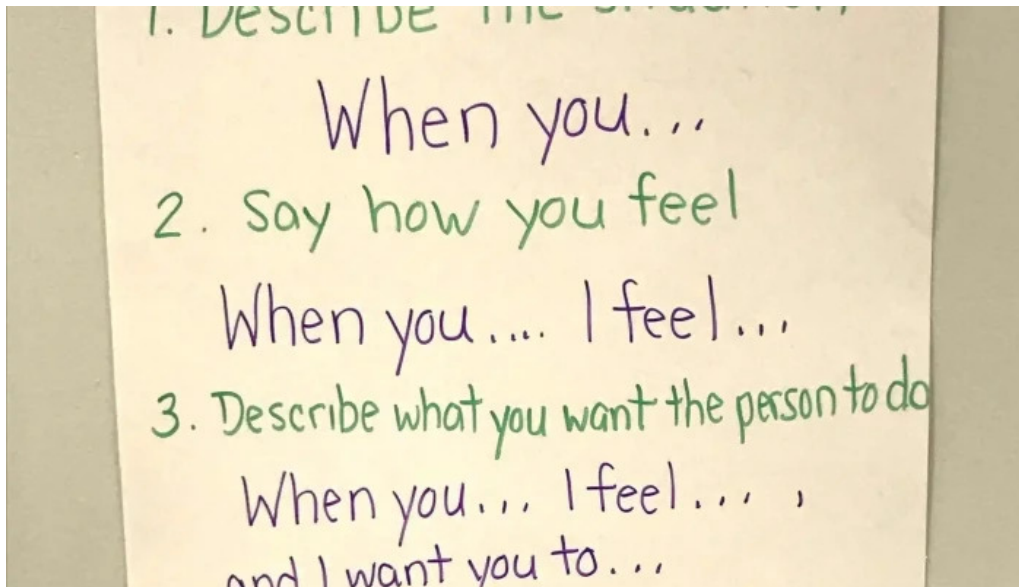 1. Describe the situation
When you...
2. Say how you feel
When you.... I feel...
3. Describe what you want the person to do
When you... I feel... ,
and I want you to...